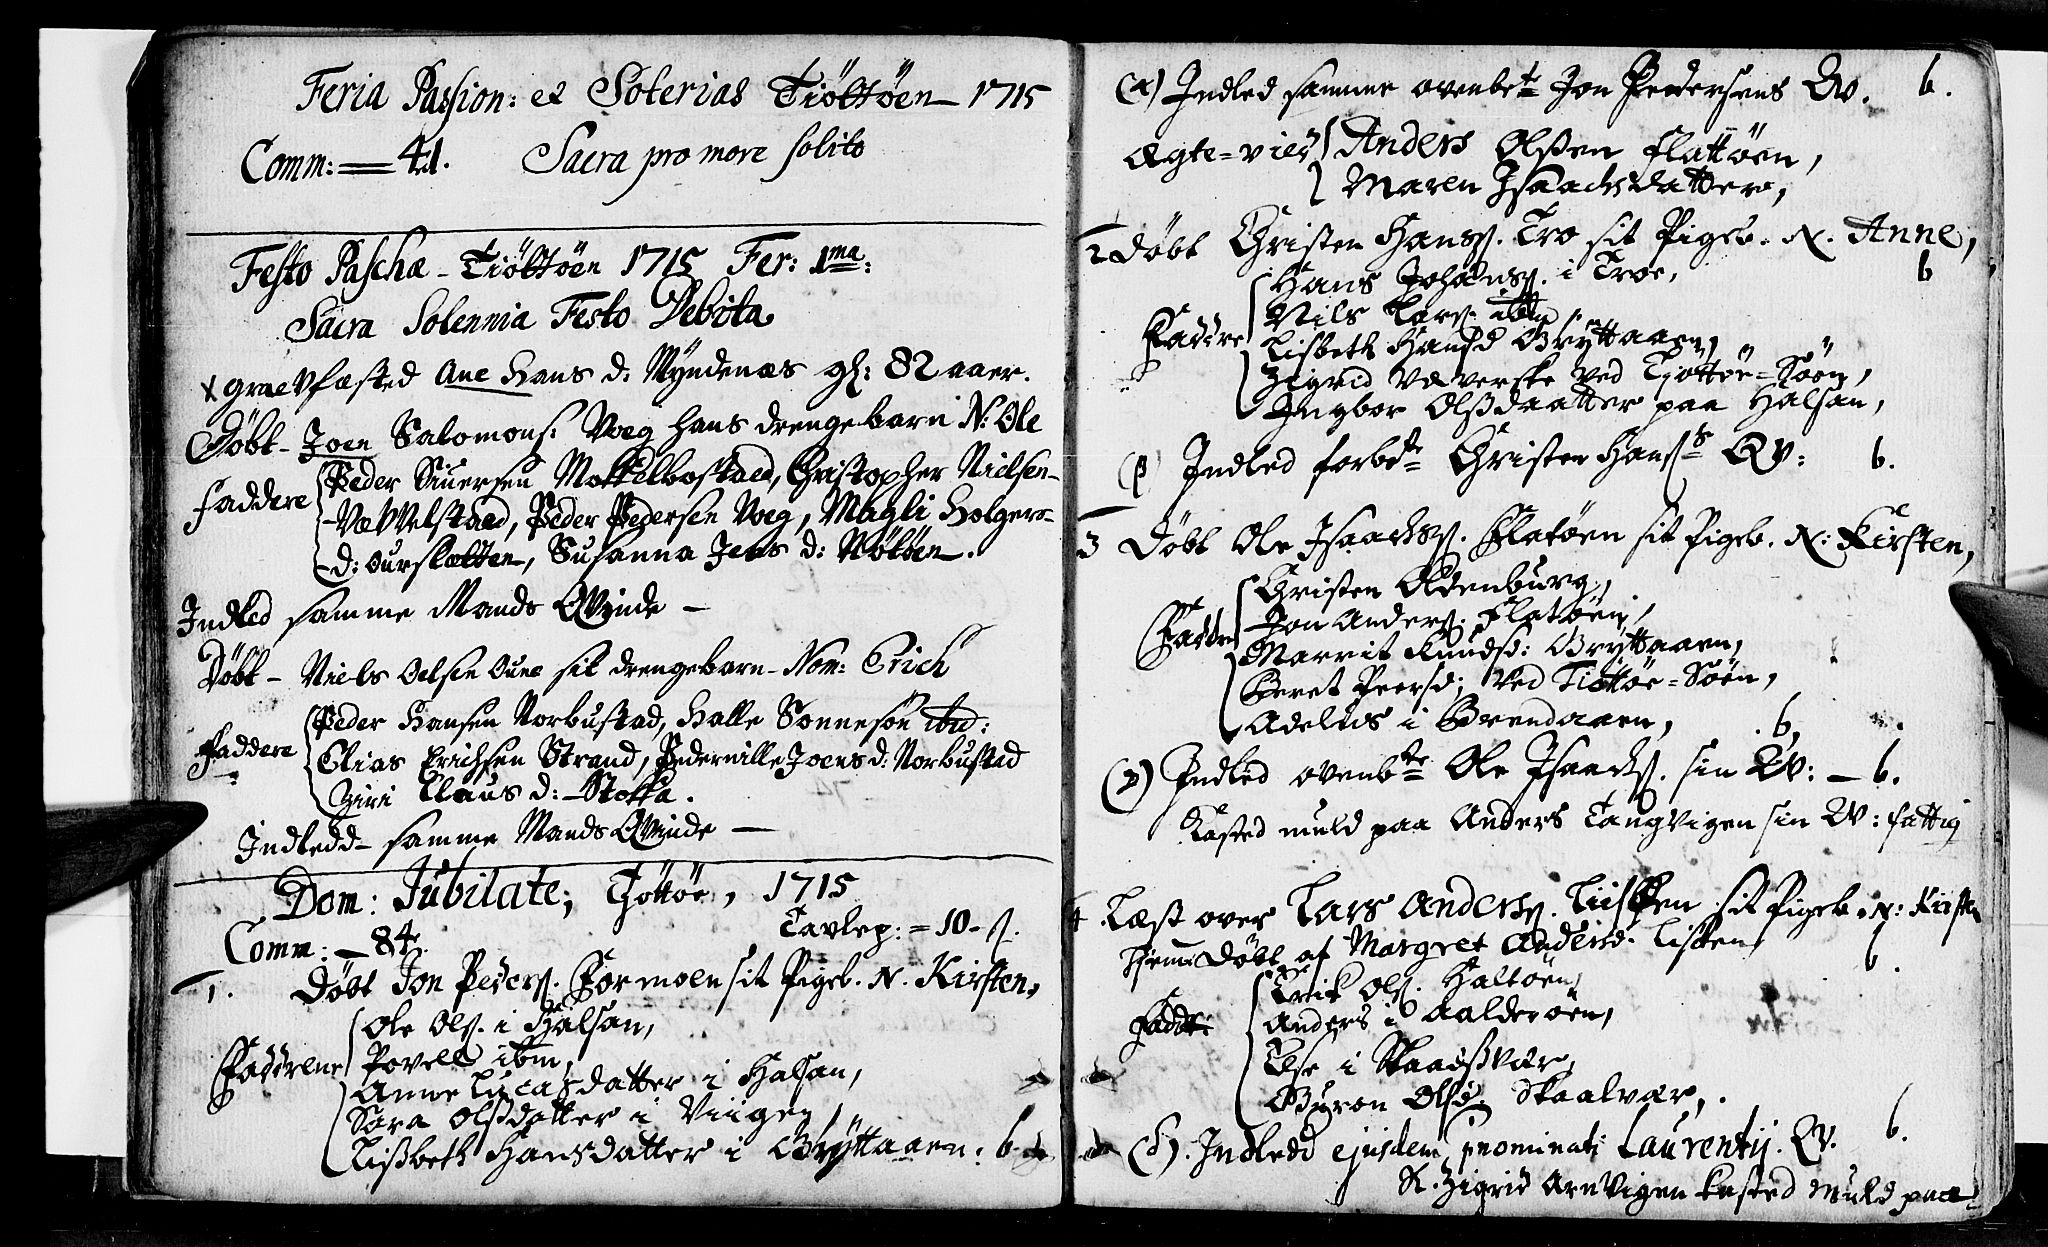 Feria Passion: et Soterias Tiöttöen 1715
Comm: = 41. Sacra pro more solito
Festo Paschæ - Tiöttöen 1715 Fer: 1ma:
Sacra Solennia Festo Debita
x graevfæsted Ane Hans d: Myndenæs gl: 82 aaer.
Döbt - Joen Salomons: Voeg hans drengebarn N: Ole
Faddere Peder Siuersen Mokkelbostaed, Christopher Nielsen-
-Vævelstaed, Peder Pedersen Voeg, Magli Holgers-
-d: Ourskotten, Susanna Jens d: Rököen.
Indled samme Mands Qvinde -
Döbt - Niels Oelsen Oune sit drengebarn - Nom: Erich
Faddere Peder Hansen Norbustad, Halle Sonnesön ibid:
Elias Erichsen Strand, Pedernille Joens d: Norbustad
Ziri Claus d: - Stokka.
Indledd - samme Mands Qvinde -
Dom: Jubilate; Tjöttöe, 1715
Comm: - 84. Tavlep: = 10 - s.
1. Döbt Jon Peders. Formoen sit Pigeb. N. Kirsten,
Faddrene Ole Ols. i Halsan,
Povell ibm,
Anne Lucasdatter i Halsan,
Sara Olsdatter i Viigen,
Lisbeth Hansdatter i Bryttaaen: 6
(α) Indled samme ovenbete Jon Pedersens Qv. 6.
Ægte=vied Anders Olssen Flattöen,
Maren Isaachsdatter,
2 Döbt Christen Hanss. Tro sit Pigeb. N. Anne,
Faddre Hans Johans. i Troe, 6
Nils Lars. ibm
Lisbeth Hansd Bryttaaen,
Zigrid Væverske ved Tjöttöe=Söen,
Ingbor Olssdaatter paa Halsan,
(β) Indled forbte Christen Hanss Qv: 6.
3 Döbt Ole Isaachs. Flatöen sit Pigeb. N: Kirsten,
Faddre Christen Oldenburg,
Jon Anders. Flatöen,
Marrit Knudsd: Bryttaaen,
Beret Peersd; ved Tiöttöe=Söen,
Adelus i Brendaaen, 6,
(γ) Indled ovenbte Ole Isaachs. sin Qv: - 6.
Kasted muld paa Anders Tangvigen sin Qv: fattig
4 Læst over Lars Anderss. Lissken sit Pigeb. N: Kirsten
hjemedöbt af Margret Andersd. Lisken, 6.
Faddr: Erik Ols. Haltöen,
Anders i Aalderöen,
Else i Skaadssvær,
Guron Olsd. Skaalvær,
(δ). Indledd ejusdem pnominati Laurentij. Qv. 6.
K. Zigrid Arnvigen kasted muld paa